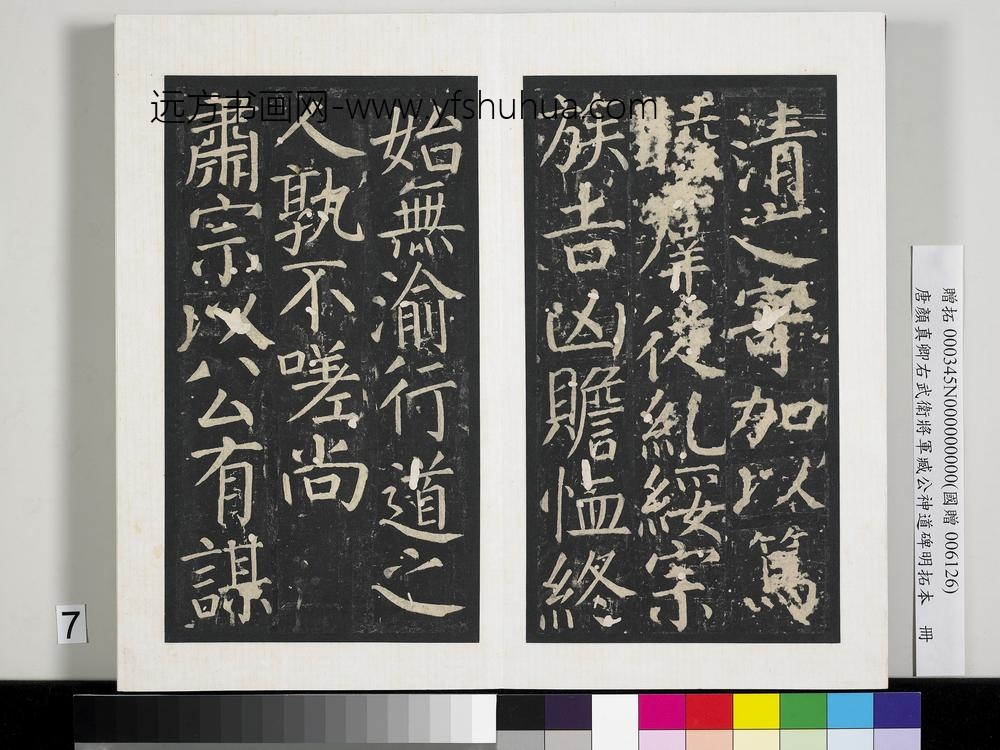 远方书画网-www.yfshuhua.com
清之寄加以篤
睦羣從糺綏宗
族吉凶贍恤終
始無渝行道之
人孰不嗟尚
肅宗以公有謀
贈拓 000345N000000000(國贈 006126)
唐顏真卿右武衛將軍臧公神道碑明拓本 冊
7